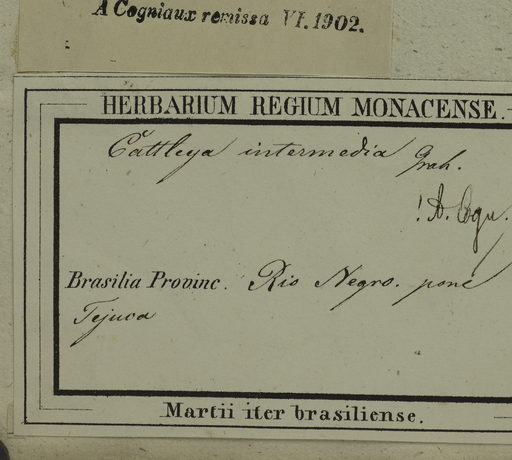 A Cogniaux remissa VI.1902.
HERBARIUM REGIUM MONACENSE.
Cattleya intermedia Grah.
! A. Cogn.
Brasilia Provinc. Rio Negro. pone
Tejuca
Martii iter brasiliense.